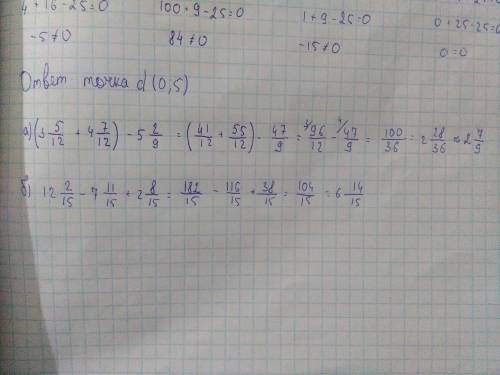 4 + 16 - 25 = 0    100 + 9 - 25 = 0    1 + 9 - 25 = 0    0 + 25 - 25 = 0
-5 ≠ 0    84 ≠ 0    -15 ≠ 0    0 = 0
Ответ: точка d (0,5)
а) (3 5/12 + 4 7/12) - 5 2/9 = (41/12 + 55/12) - 47/9 = ³/96/12 - ⁴/47/9 = 100/36 = 2 28/36 = 2 7/9
б) 12 2/15 - 7 11/15 + 2 8/15 = 182/15 - 116/15 + 38/15 = 104/15 = 6 14/15